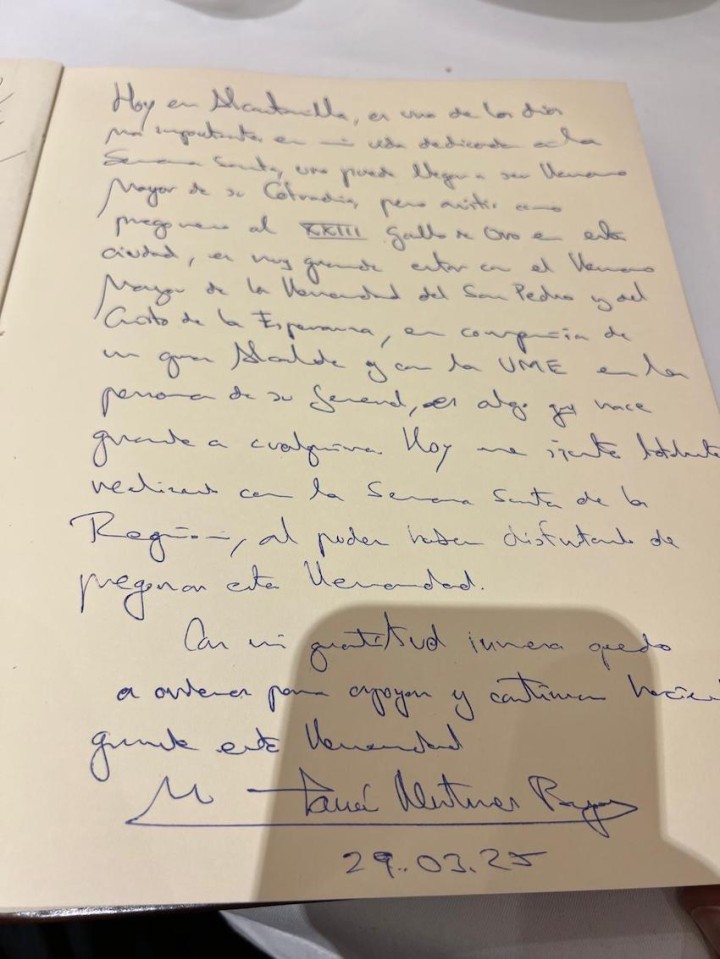 Hoy en Alcantarilla, es uno de los días
más importantes en mi vida dedicada a la
Semana Santa, uno puede llegar a ser Hermano
Mayor de su Cofradía, pero asistir como
pregonero al XXIII Gallo de Oro en esta
ciudad, es muy grande estar con el Hermano
Mayor de la Hermandad del San Pedro y del
Cristo de la Esperanza, en compañía de
un gran Alcalde y con la UME en la
persona de su General, es algo que hace
grande a cualquiera. Hoy me siento
realizado con la Semana Santa de la
Región, al poder haber disfrutado de
pregonar esta Hermandad.
Con mi gratitud inmensa quedo
a ordenes para apoyar y continuar
grande esta Hermandad
29.03.25